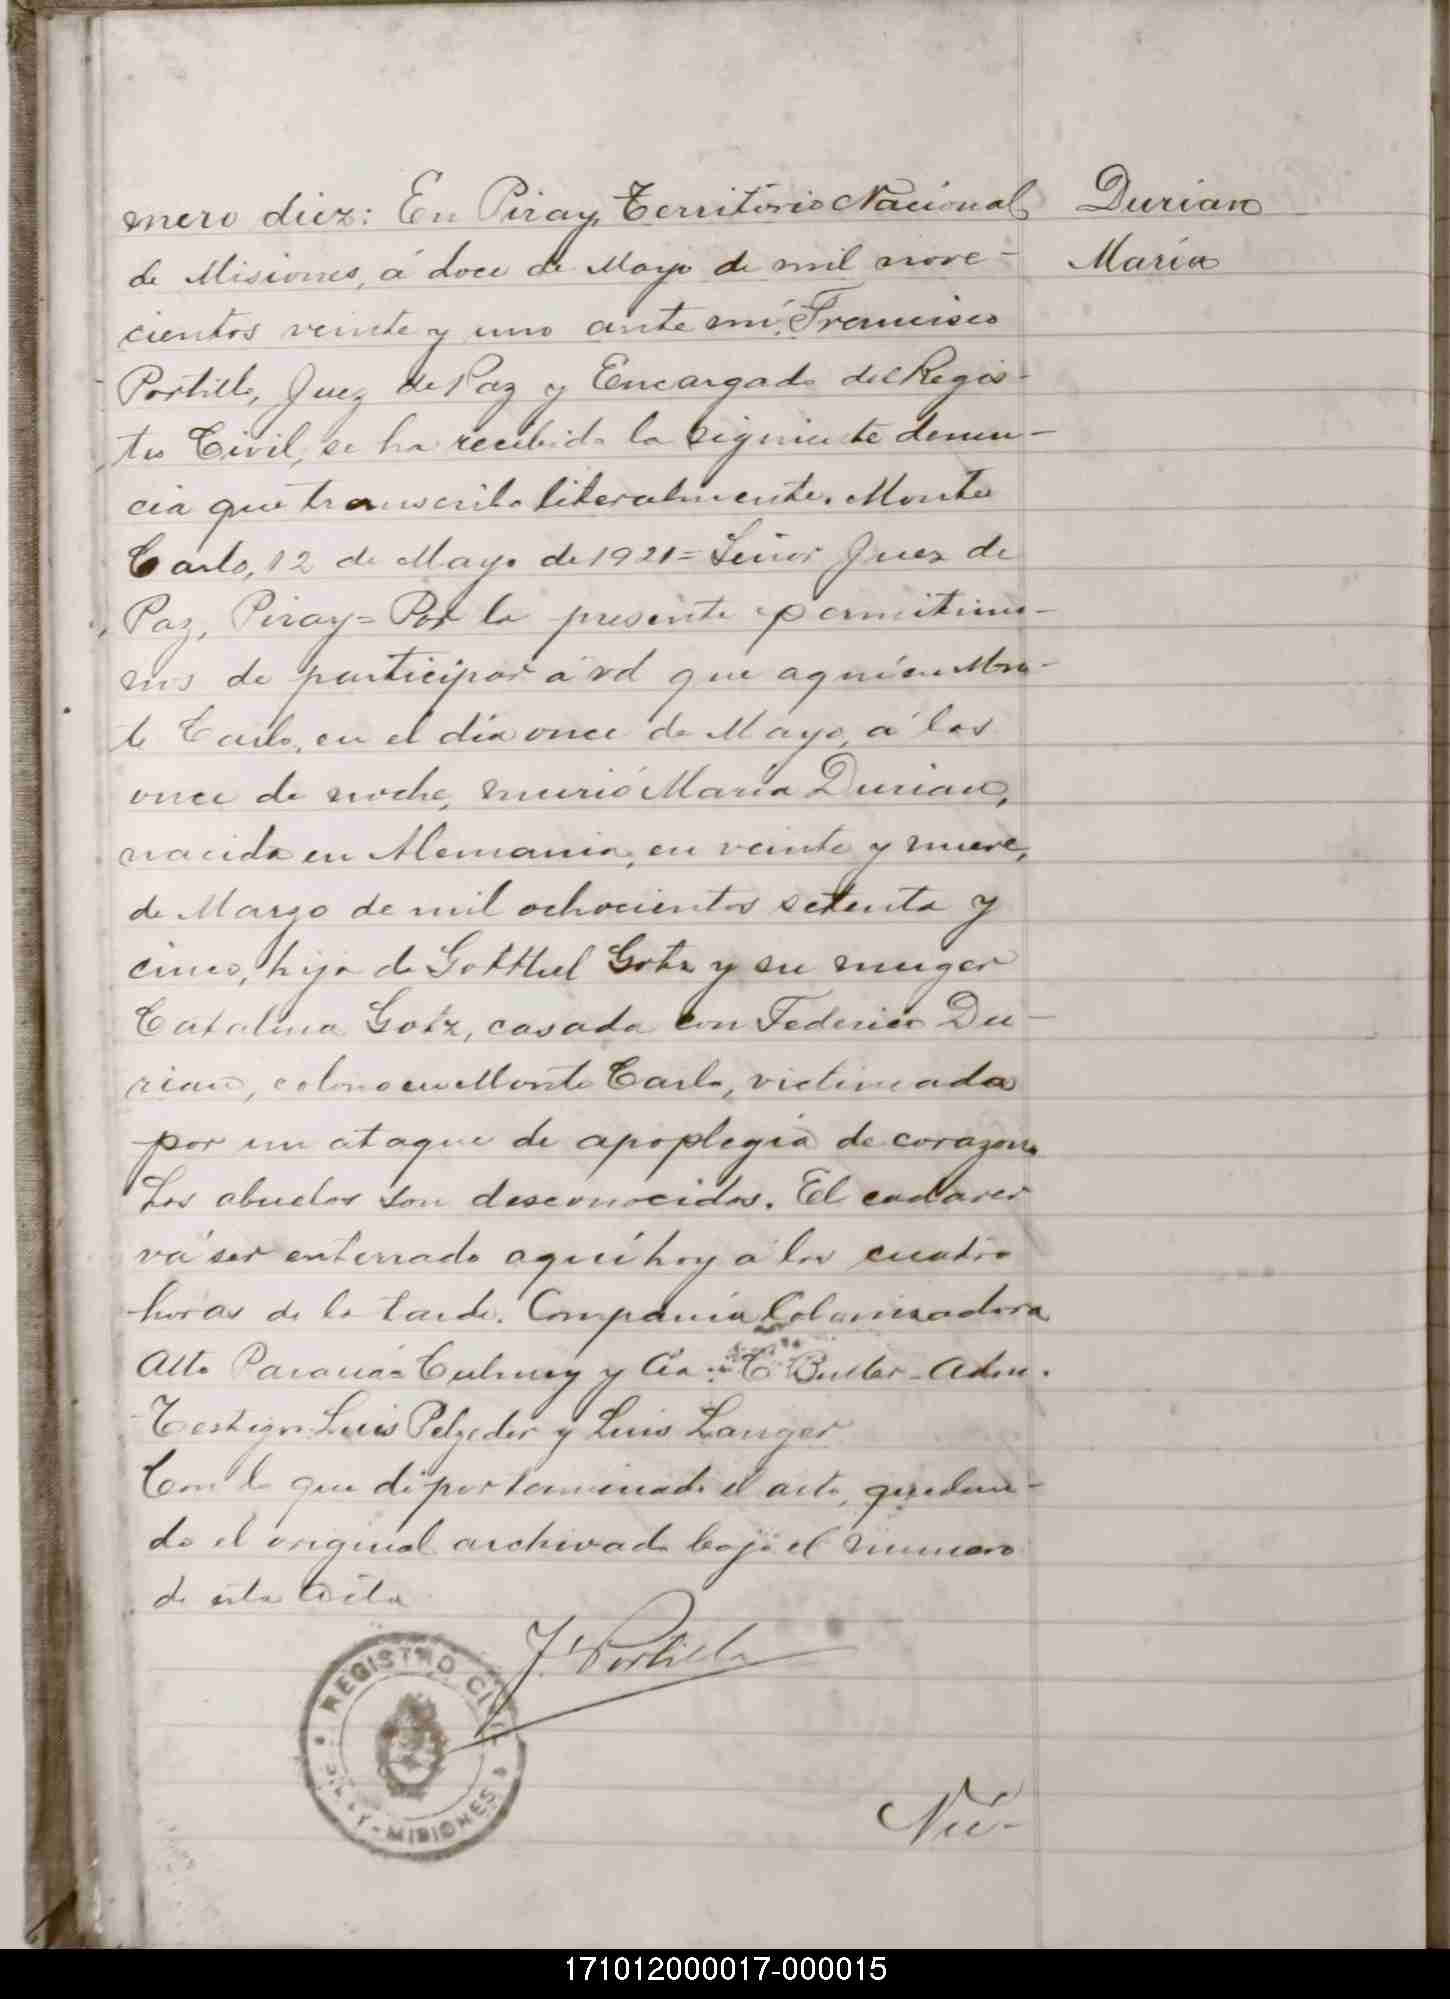 mero diez: En Piray, Territorio Nacional
Durian
de Misiones, á doce de Mayo de mil nove-
María
cientos veinte y uno ante mí, Francisco
Portillo, Juez de Paz y Encargado del Regis-
tro Civil, se ha recibido la siguiente denun-
cia que transcribo literalmente. Monte
Carlo, 12 de Mayo de 1921= Señor Juez de
Paz, Piray= Por la presente permitimo-
nos de participar á vd que aquí en Mon-
te Carlo, en el día once de Mayo, á las
once de noche, murió María Durian,
nacida en Alemania, en veinte y nueve,
de Marzo de mil ochocientos setenta y
cinco, hija de Gotthel Gotz y su muger
Catalina Gotz, casada con Federico Du-
rian, colono en Monte Carlo, victimada
por un ataque de apoplegia de corazon.
Los abuelos son desconocidos. El cadaver
vá ser enterrado aquí hoy á las cuatro
horas de la tarde. Compañia Colonizadora
Alto Paraná= Culmey y Cia.= C. Buller- Adm.
Testigos: Luis Pelzeder y Luis Langer
Con lo que dí por terminado el acto, quedan-
do el original archivado bajo el numero
de esta acta
F. Portillo
REGISTRO CIVIL
PIRAY - MISIONES
Nú-
171012000017-000015